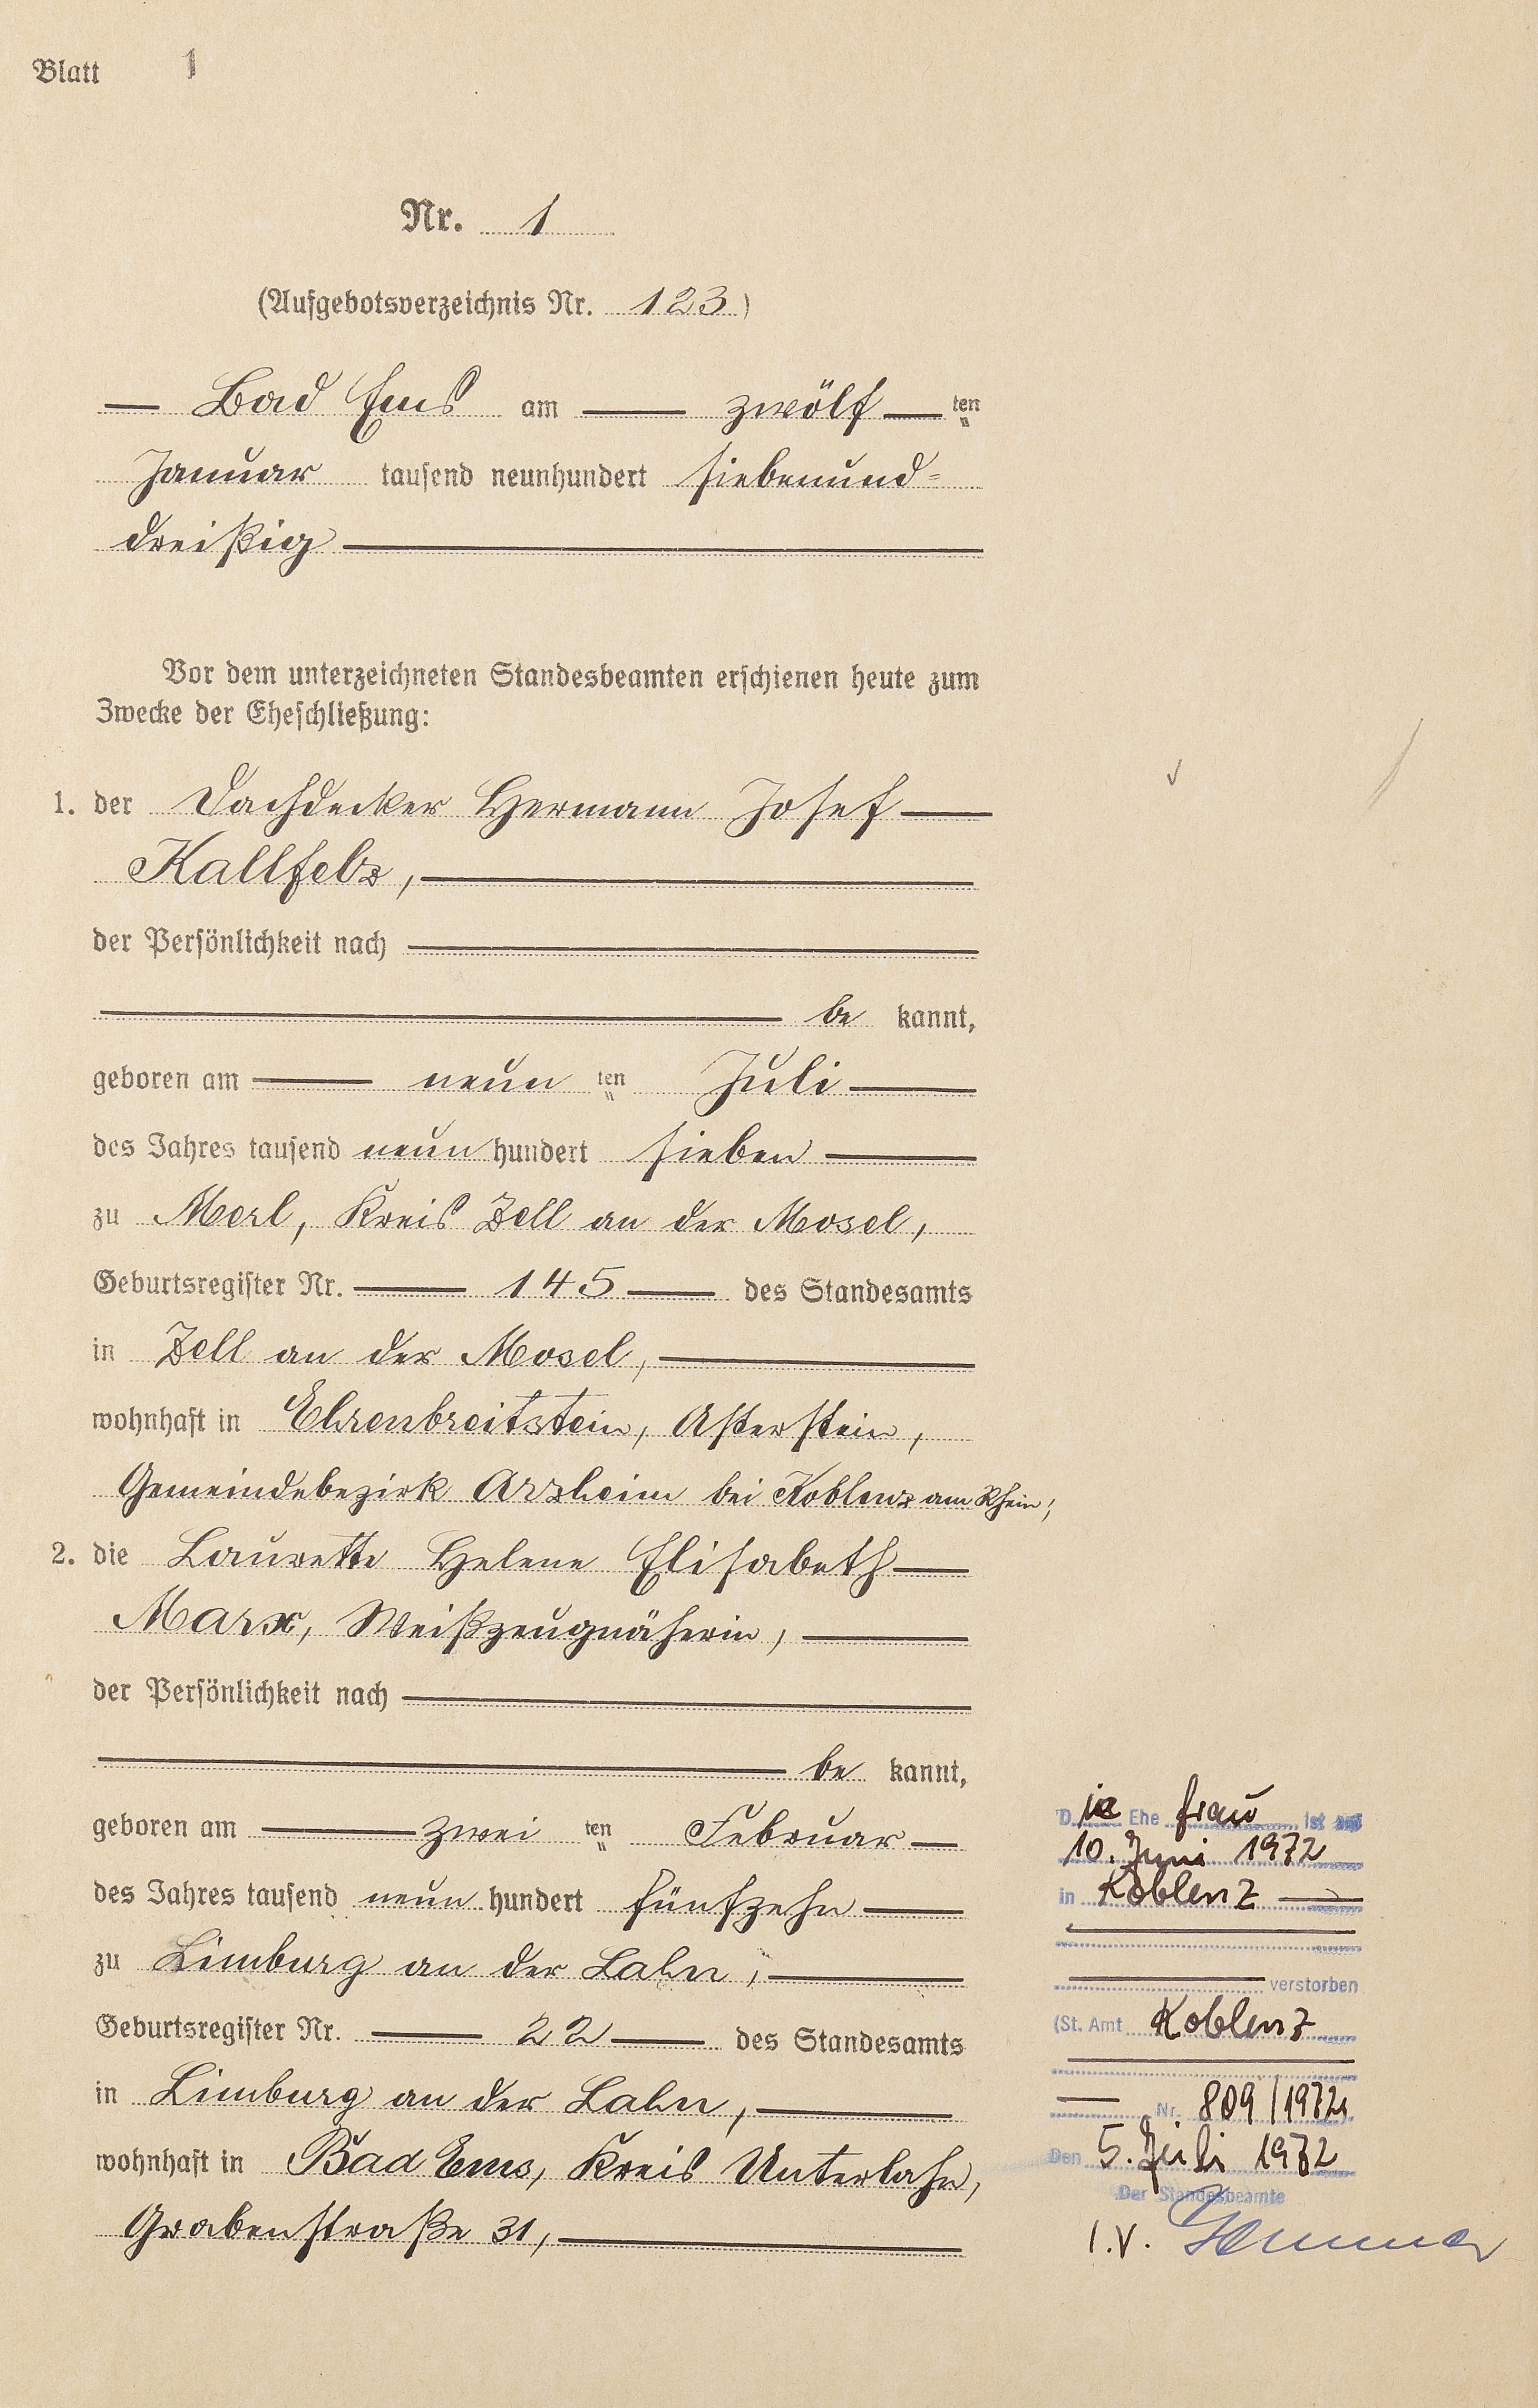 Blatt 1
Nr. 1
(Aufgebotsverzeichnis Nr. 123)
Bad Ems am zwölf ten
Januar tausend neunhundert siebenund=
dreißig
Vor dem unterzeichneten Standesbeamten erschienen heute zum
Zwecke der Eheschließung:
1. der Dachdecker Hermann Josef
Kallfelz,
der Persönlichkeit nach
be kannt,
geboren am neun ten Juli
des Jahres tausend neun hundert sieben
zu Merl, Kreis Zell an der Mosel,
Geburtsregister Nr. 145 des Standesamts
in Zell an der Mosel,
wohnhaft in Ehrenbreitstein, Asterstein,
Gemeindebezirk Arzheim bei Koblenz am Rhein;
2. die Laurette Helene Elisabeth
Marx, Weißzeugnäherin,
der Persönlichkeit nach
be kannt,
geboren am zwei ten Februar
des Jahres tausend neun hundert fünfzehn
zu Limburg an der Lahn,
Geburtsregister Nr. 22 des Standesamts
in Limburg an der Lahn,
wohnhaft in Bad Ems, Kreis Unterlahn,
Grabenstraße 31,
Die Ehe frau ist am
10. Juni 1972
in Koblenz
verstorben
(St. Amt Koblenz
Nr. 809/1972)
Den 5. Juli 1972
Der Standesbeamte
I.V.